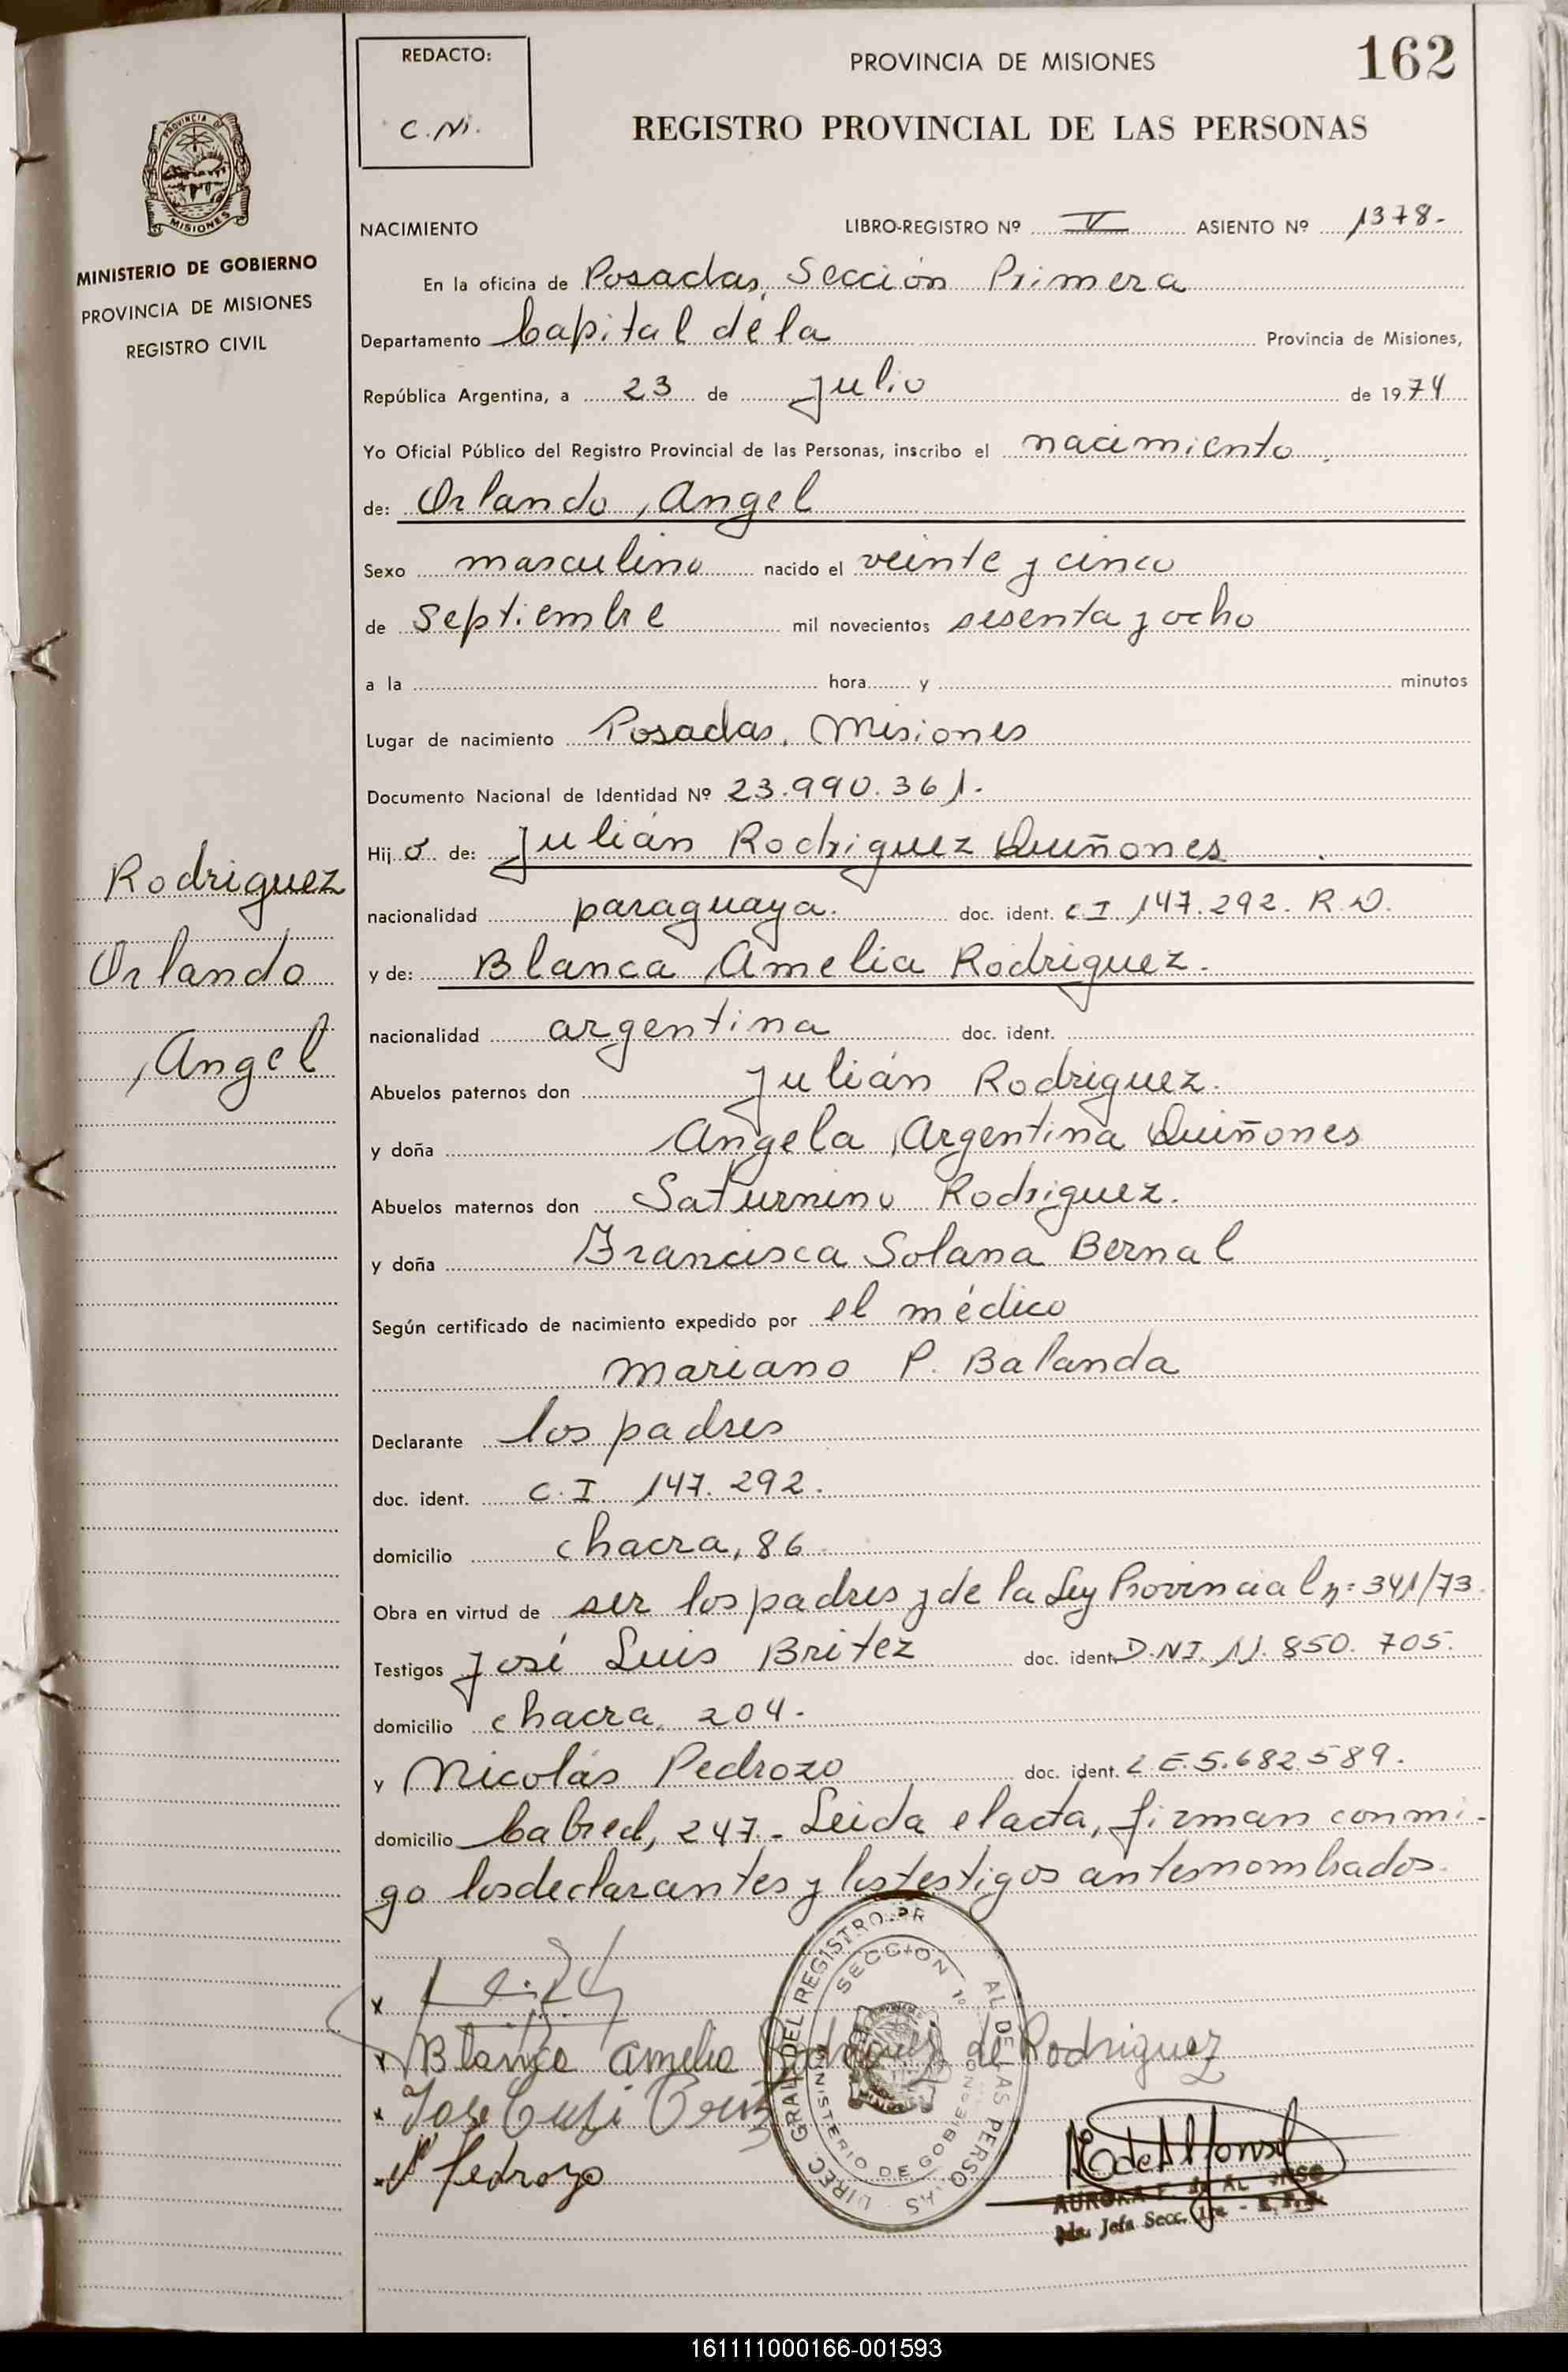 REDACTO:
C. Ni.
PROVINCIA DE MISIONES
162
REGISTRO PROVINCIAL DE LAS PERSONAS
PROVINCIA DE
MISIONES
MINISTERIO DE GOBIERNO
PROVINCIA DE MISIONES
REGISTRO CIVIL
NACIMIENTO LIBRO-REGISTRO Nº V ASIENTO Nº 1378-
En la oficina de Posadas, Sección Primera
Departamento Capital de la Provincia de Misiones,
República Argentina, a 23 de Julio de 1974
Yo Oficial Público del Registro Provincial de las Personas, inscribo el nacimiento
de: Orlando Angel
Sexo masculino nacido el veinte y cinco
de Septiembre mil novecientos sesenta y ocho
a la hora y minutos
Lugar de nacimiento Posadas, Misiones
Documento Nacional de Identidad Nº 23.990.361.
Hij o de: Julián Rodriguez Quiñones
nacionalidad paraguaya. doc. ident. C.I 147.292. R.D.
y de: Blanca Amelia Rodriguez.
nacionalidad argentina doc. ident.
Abuelos paternos don Julián Rodriguez.
y doña Angela Argentina Quiñones
Abuelos maternos don Saturnino Rodriguez.
y doña Francisca Solana Bernal
Según certificado de nacimiento expedido por el médico
Mariano P. Balanda
Declarante los padres
doc. ident. C.I. 147.292.
domicilio chacra, 86
Obra en virtud de ser los padres y de la Ley Provincial nº 341/73
Testigos José Luis Britez doc. ident. D.N.I. 11.850.705.
domicilio chacra 204.
y Nicolás Pedrozo doc. ident. L.E. 5.682.589.
domicilio Cabred, 247.- Leida el acta, firman conmi-
go los declarantes y los testigos antesnombrados.
Rodriguez
Orlando
Angel
x
x Blanca Amelia Rodriguez de Rodriguez
x Jose Luis Britez
x N Pedrozo
DIREC. GRAL DEL REGISTRO PR AL DE LAS PERSO AS
SECCION 1º
MINISTERIO DE GOBIERNO
E de Alfonso
AURORA E. de AL ONSO
Jefa Secc. 1ra.
161111000166-001593